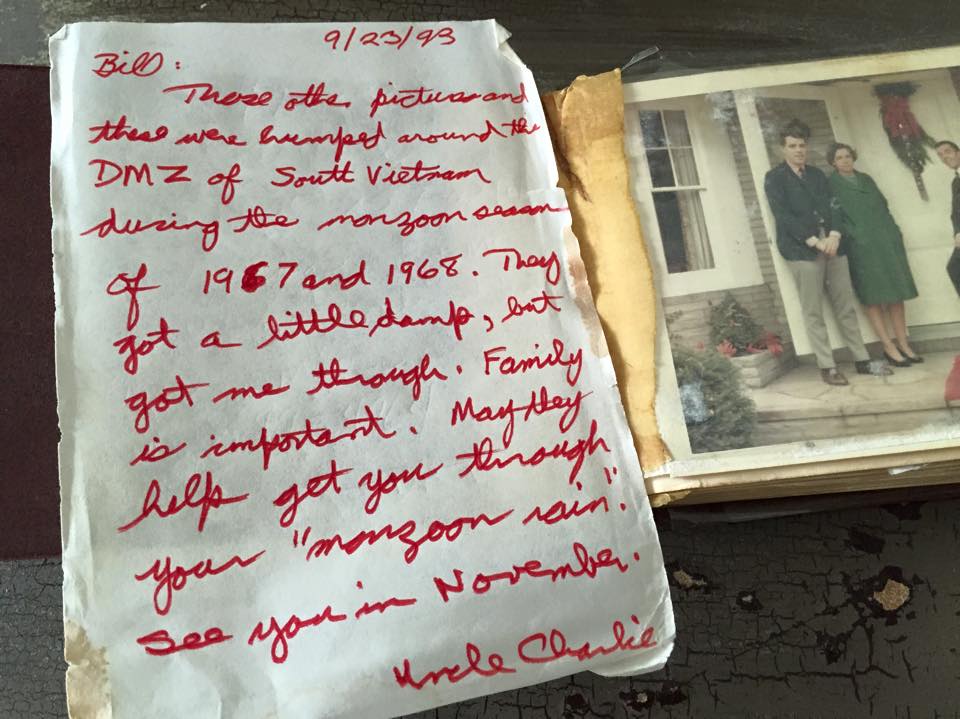 9/23/93
Bill:
Those other pictures and
these were humped around the
DMZ of South Vietnam
during the monzoon season
of 1967 and 1968. They
got a little damp, but
got me through. Family
is important. May they
help get you through
your "monzoon rain".
See you in November.
Uncle Charlie